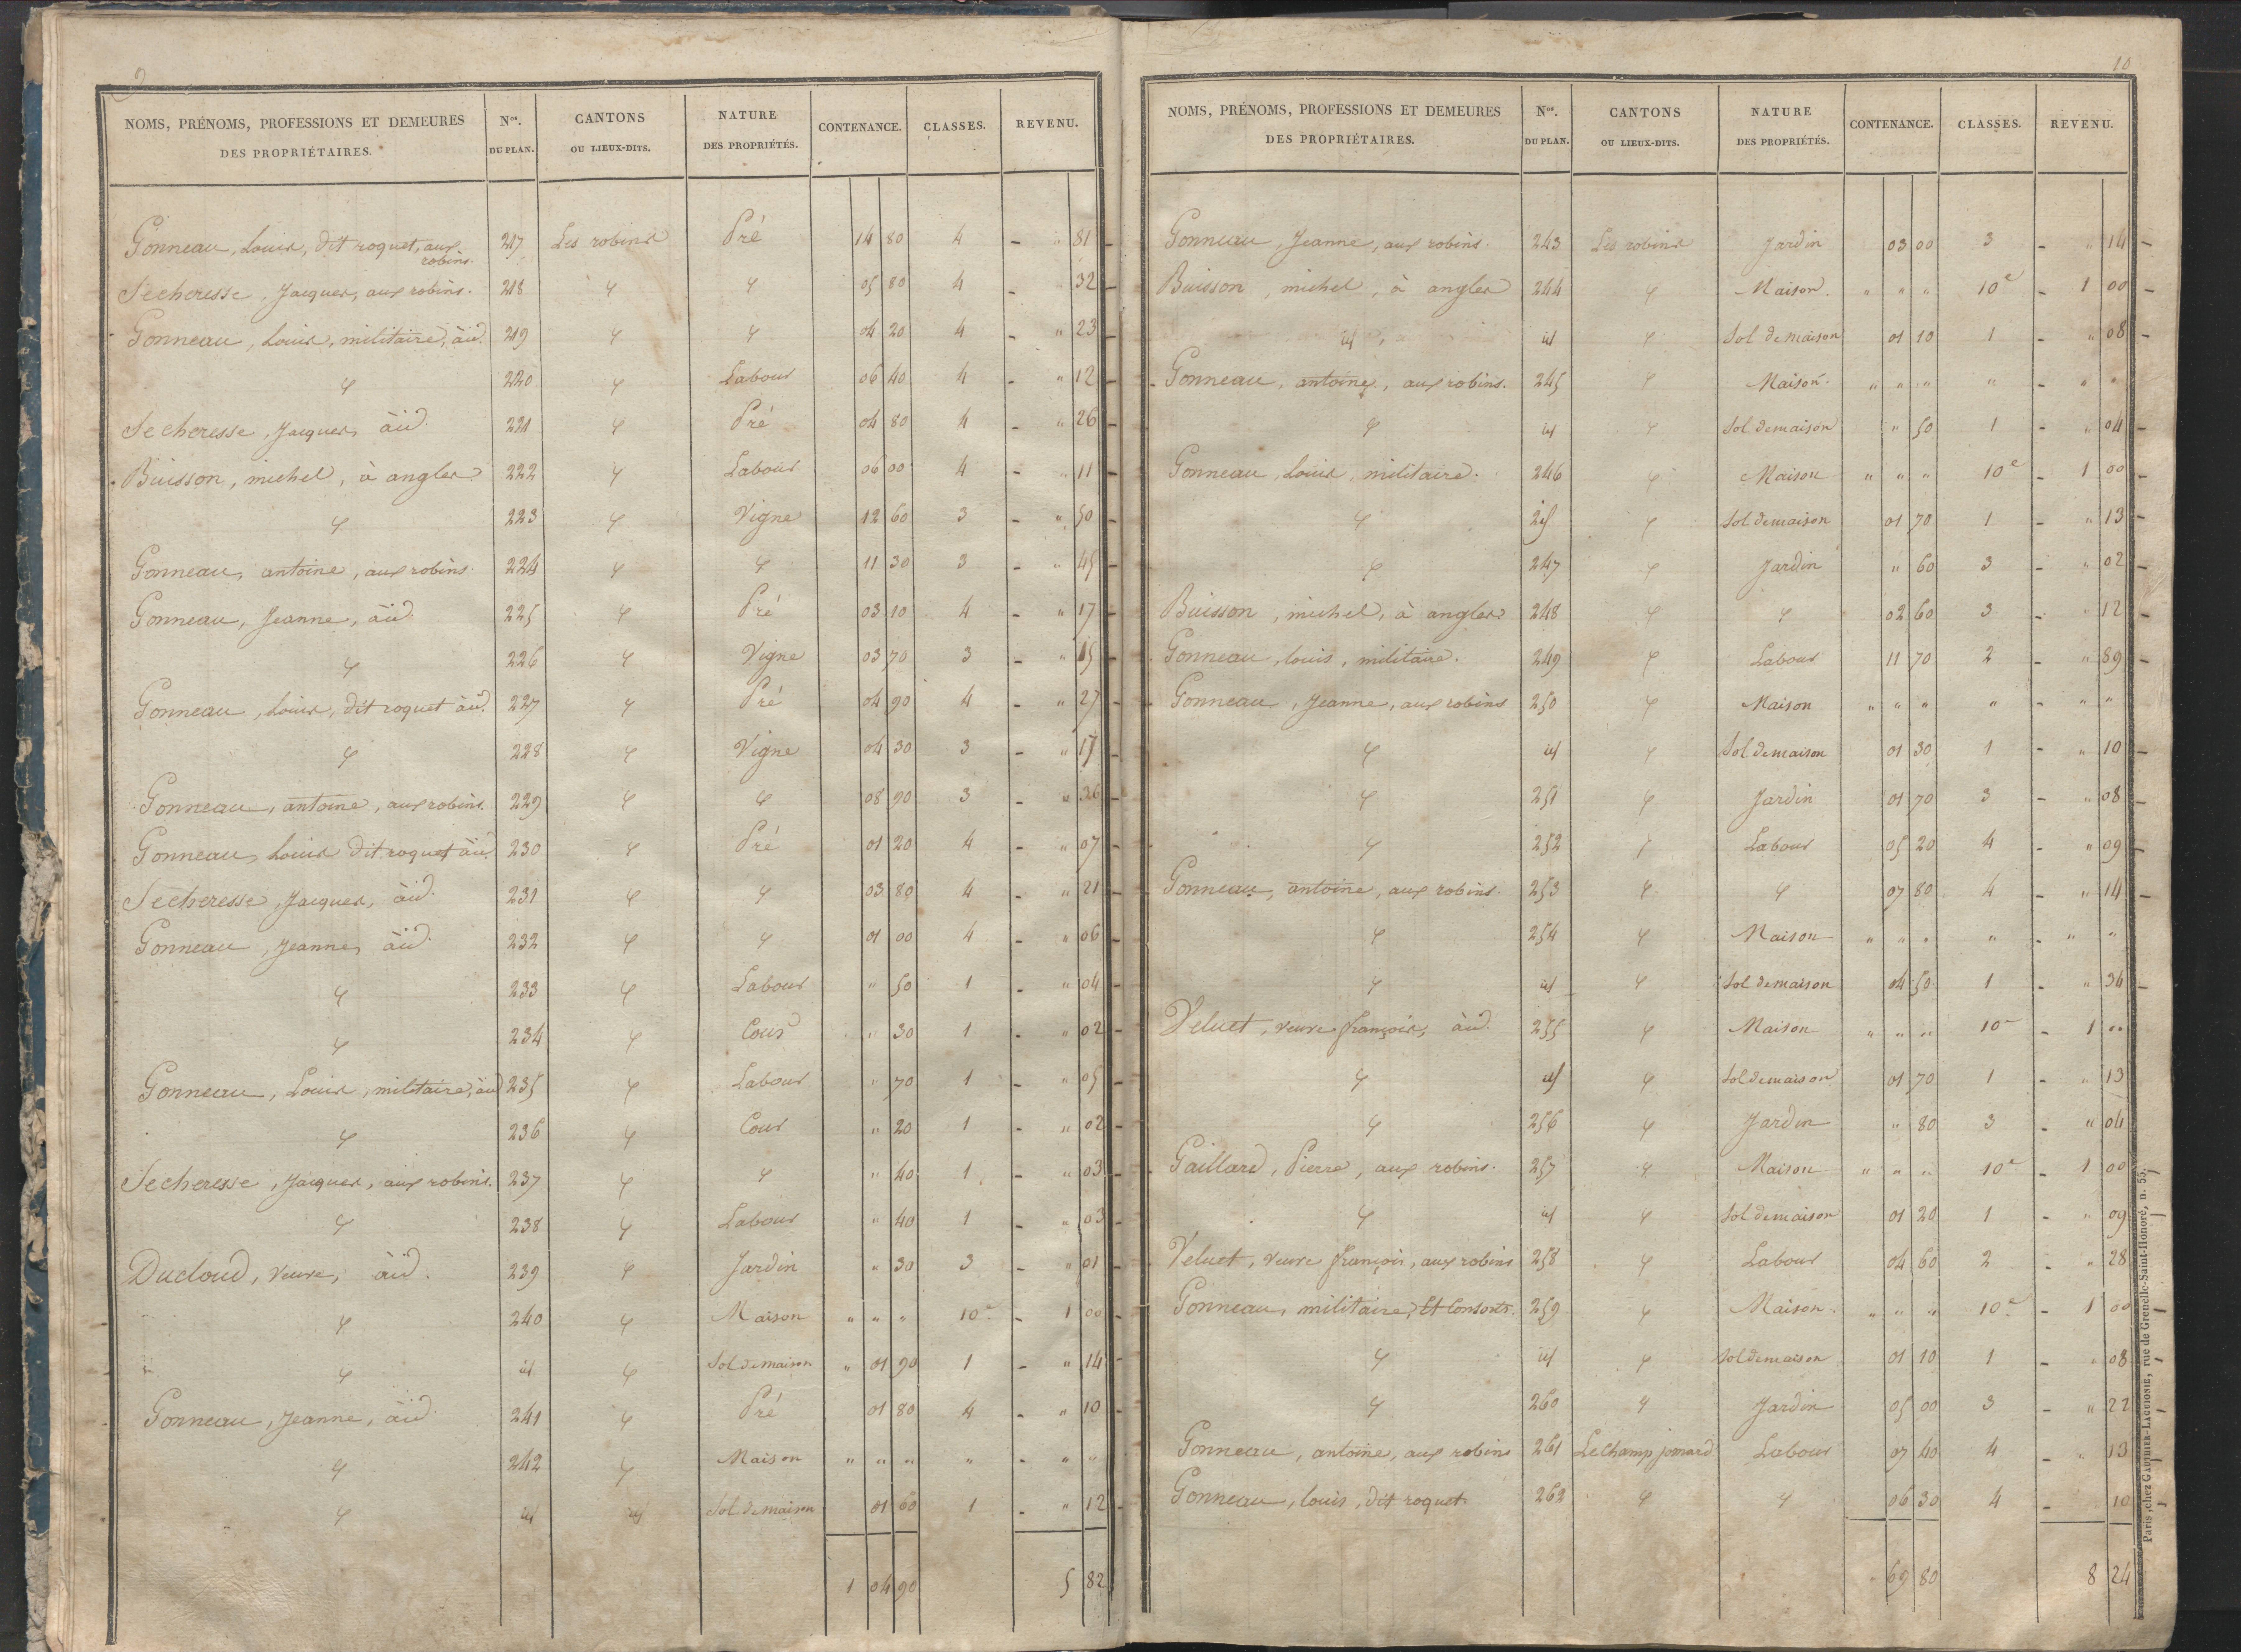 NOMS, PRÉNOMS, PROFESSIONS ET DEMEURES DES PROPRIÉTAIRES. Nos. DU PLAN. CANTONS OU LIEUX-DITS. NATURE DES PROPRIÉTÉS. CONTENANCE. CLASSES. REVENU.
Gonneau, Louis, dit roquet, aux robins. 217 Les robins Pré 14 80 4 - " 81
Secheresse, Jacques, aux robins. 218 " " 05 80 4 - " 32
Gonneau, Louis, militaire, àid. 219 " " 04 20 4 - " 23
" 220 " Labour 06 40 4 - " 12
Secheresse, Jacques, àid. 221 " Pré 04 80 4 - " 26
Buisson, michel, à angles 222 " Labour 06 00 4 - " 11
" 223 " Vigne 12 60 3 - " 50
Gonneau, antoine, aux robins. 224 " " 11 30 3 - " 45
Gonneau, Jeanne, àid. 225 " Pré 03 10 4 - " 17
" 226 " Vigne 03 70 3 - " 15
Gonneau, Louis, dit roquet àid. 227 " Pré 04 90 4 - " 27
" 228 " Vigne 04 30 3 - " 17
Gonneau, antoine, aux robins. 229 " " 08 90 3 - " 36
Gonneau, Louis dit roquet àid. 230 " Pré 01 20 4 - " 07
Secheresse, Jacques, àid. 231 " " 03 80 4 - " 21
Gonneau, Jeanne, àid. 232 " " 01 00 4 - " 06
" 233 " Labour " 50 1 - " 04
" 234 " Cour " 30 1 - " 02
Gonneau, Louis, militaire, àid 235 " Labour " 70 1 - " 05
" 236 " Cour " 20 1 - " 02
Secheresse, Jacques, aux robins. 237 " " " 40 1 - " 03
" 238 " Labour " 40 1 - " 03
Ducloud, veuve, àid. 239 " Jardin " 30 3 - " 01
" 240 " Maison " " " 10e - 1 00
" id " Sol de maison " 01 90 1 - " 14
Gonneau, Jeanne, àid. 241 " Pré 01 80 4 - " 10
" 242 " Maison " " " " - " "
" id id Sol de maison 01 60 1 - " 12
1 04 90 5 82
10
NOMS, PRÉNOMS, PROFESSIONS ET DEMEURES DES PROPRIÉTAIRES. Nos. DU PLAN. CANTONS OU LIEUX-DITS. NATURE DES PROPRIÉTÉS. CONTENANCE. CLASSES. REVENU.
Gonneau, Jeanne, aux robins. 243 Les robins Jardin 03 00 3 - " 14
Buisson, michel, à angles 244 " Maison. " " " 10e - 1 00
id id " Sol de maison 01 10 1 - " 08
Gonneau, antoine, aux robins. 245 " Maison. " " " " - " "
" id " Sol de maison " 50 1 - " 04
Gonneau, Louis, militaire. 246 " Maison " " " 10e - 1 00
" id " Sol de maison 01 70 1 - " 13
" 247 " Jardin " 60 3 - " 02
Buisson, michel, à angles 248 " " 02 60 3 - " 12
Gonneau, louis, militaire. 249 " Labour 11 70 2 - " 89
Gonneau, Jeanne, aux robins 250 " Maison " " " " - " "
" id " Sol de maison 01 30 1 - " 10
" 251 " Jardin 01 70 3 - " 08
" 252 " Labour 05 20 4 - " 09
Gonneau, antoine, aux robins. 253 " " 07 80 4 - " 14
" 254 " Maison " " " " - " "
" id " Sol de maison 04 50 1 - " 36
Veluet, veuve françois, àid. 255 " Maison " " " 10e - 1 "
" id " Sol de maison 01 70 1 - " 13
" 256 " Jardin " 80 3 - " 04
Gaillard, Pierre, aux robins. 257 " Maison " " " 10e - 1 00
" id " Sol de maison 01 20 1 - " 09
Veluet, veuve françois, aux robins 258 " Labour 04 60 2 - " 28
Gonneau, militaire, Et Consorts. 259 " Maison. " " " 10e - 1 00
" id " Sol de maison 01 10 1 - " 08
" 260 " Jardin 05 00 3 - " 22
Gonneau, antoine, aux robins 261 Le Champ jomard Labour 07 40 4 - " 13
Gonneau, louis, dit roquet 262 " " 06 30 4 - 10
69 80 8 24
Paris, chez GAUTHIER-LAGUIONIE, rue de Grenelle-Saint-Honoré, n. 55.